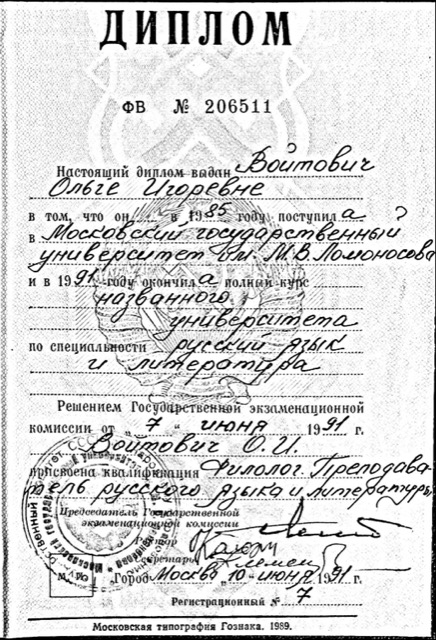 ДИПЛОМ
ФВ № 206511
Настоящий диплом выдан Войтович
Ольге Игоревне
в том, что он в 1985 году поступила
в Московский государственный
университет им. М.В. Ломоносова
и в 1991 году окончила полный курс
названного
университета
по специальности русский язык
и литература
Решением Государственной экзаменационной
комиссии от "7" июня 1991 г.
Войтович О.И.
присвоена квалификация Филолог. Преподава-
тель русского языка и литературы
Председатель Государственной
экзаменационной комиссии
Ректор
Секретарь
М.П.
Город Москва 10 июня 1991 г.
Регистрационный № 7
Московская типография Гознака. 1989.